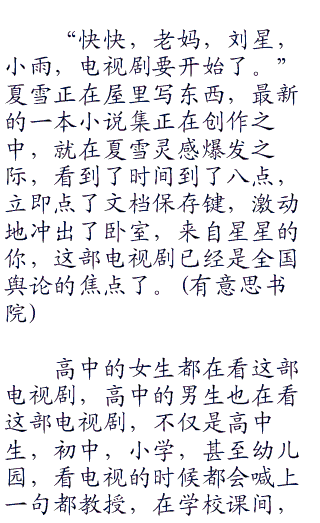 “快快，老妈，刘星，
小雨，电视剧要开始了。”
夏雪正在屋里写东西，最新
的一本小说集正在创作之
中，就在夏雪灵感爆发之
际，看到了时间到了八点，
立即点了文档保存键，激动
地冲出了卧室，来自星星的
你，这部电视剧已经是全国
舆论的焦点了。(有意思书
院)
高中的女生都在看这部
电视剧，高中的男生也在看
这部电视剧，不仅是高中
生，初中，小学，甚至幼儿
园，看电视的时候都会喊上
一句都教授，在学校课间，